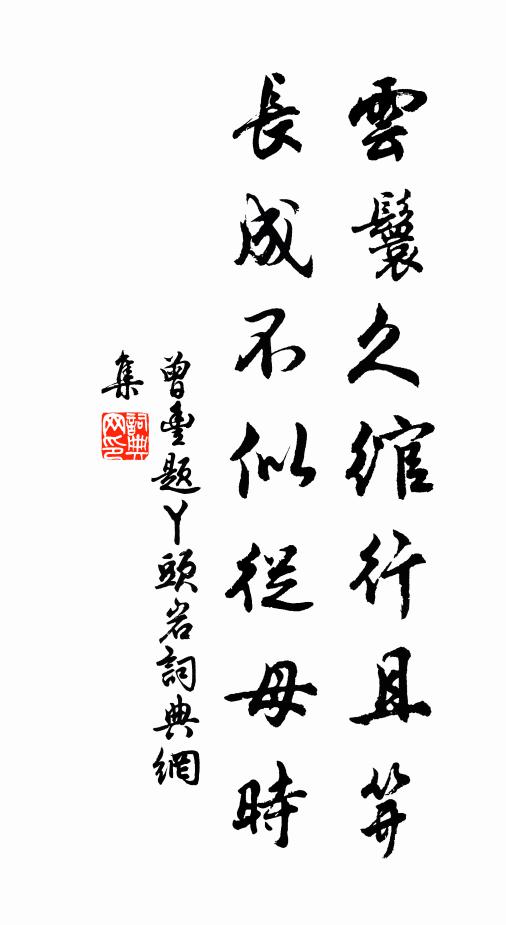 雲鬟久綰行且笄
長成不似從母時
曾豊題丫頭岩詞典網
集
詞典網印